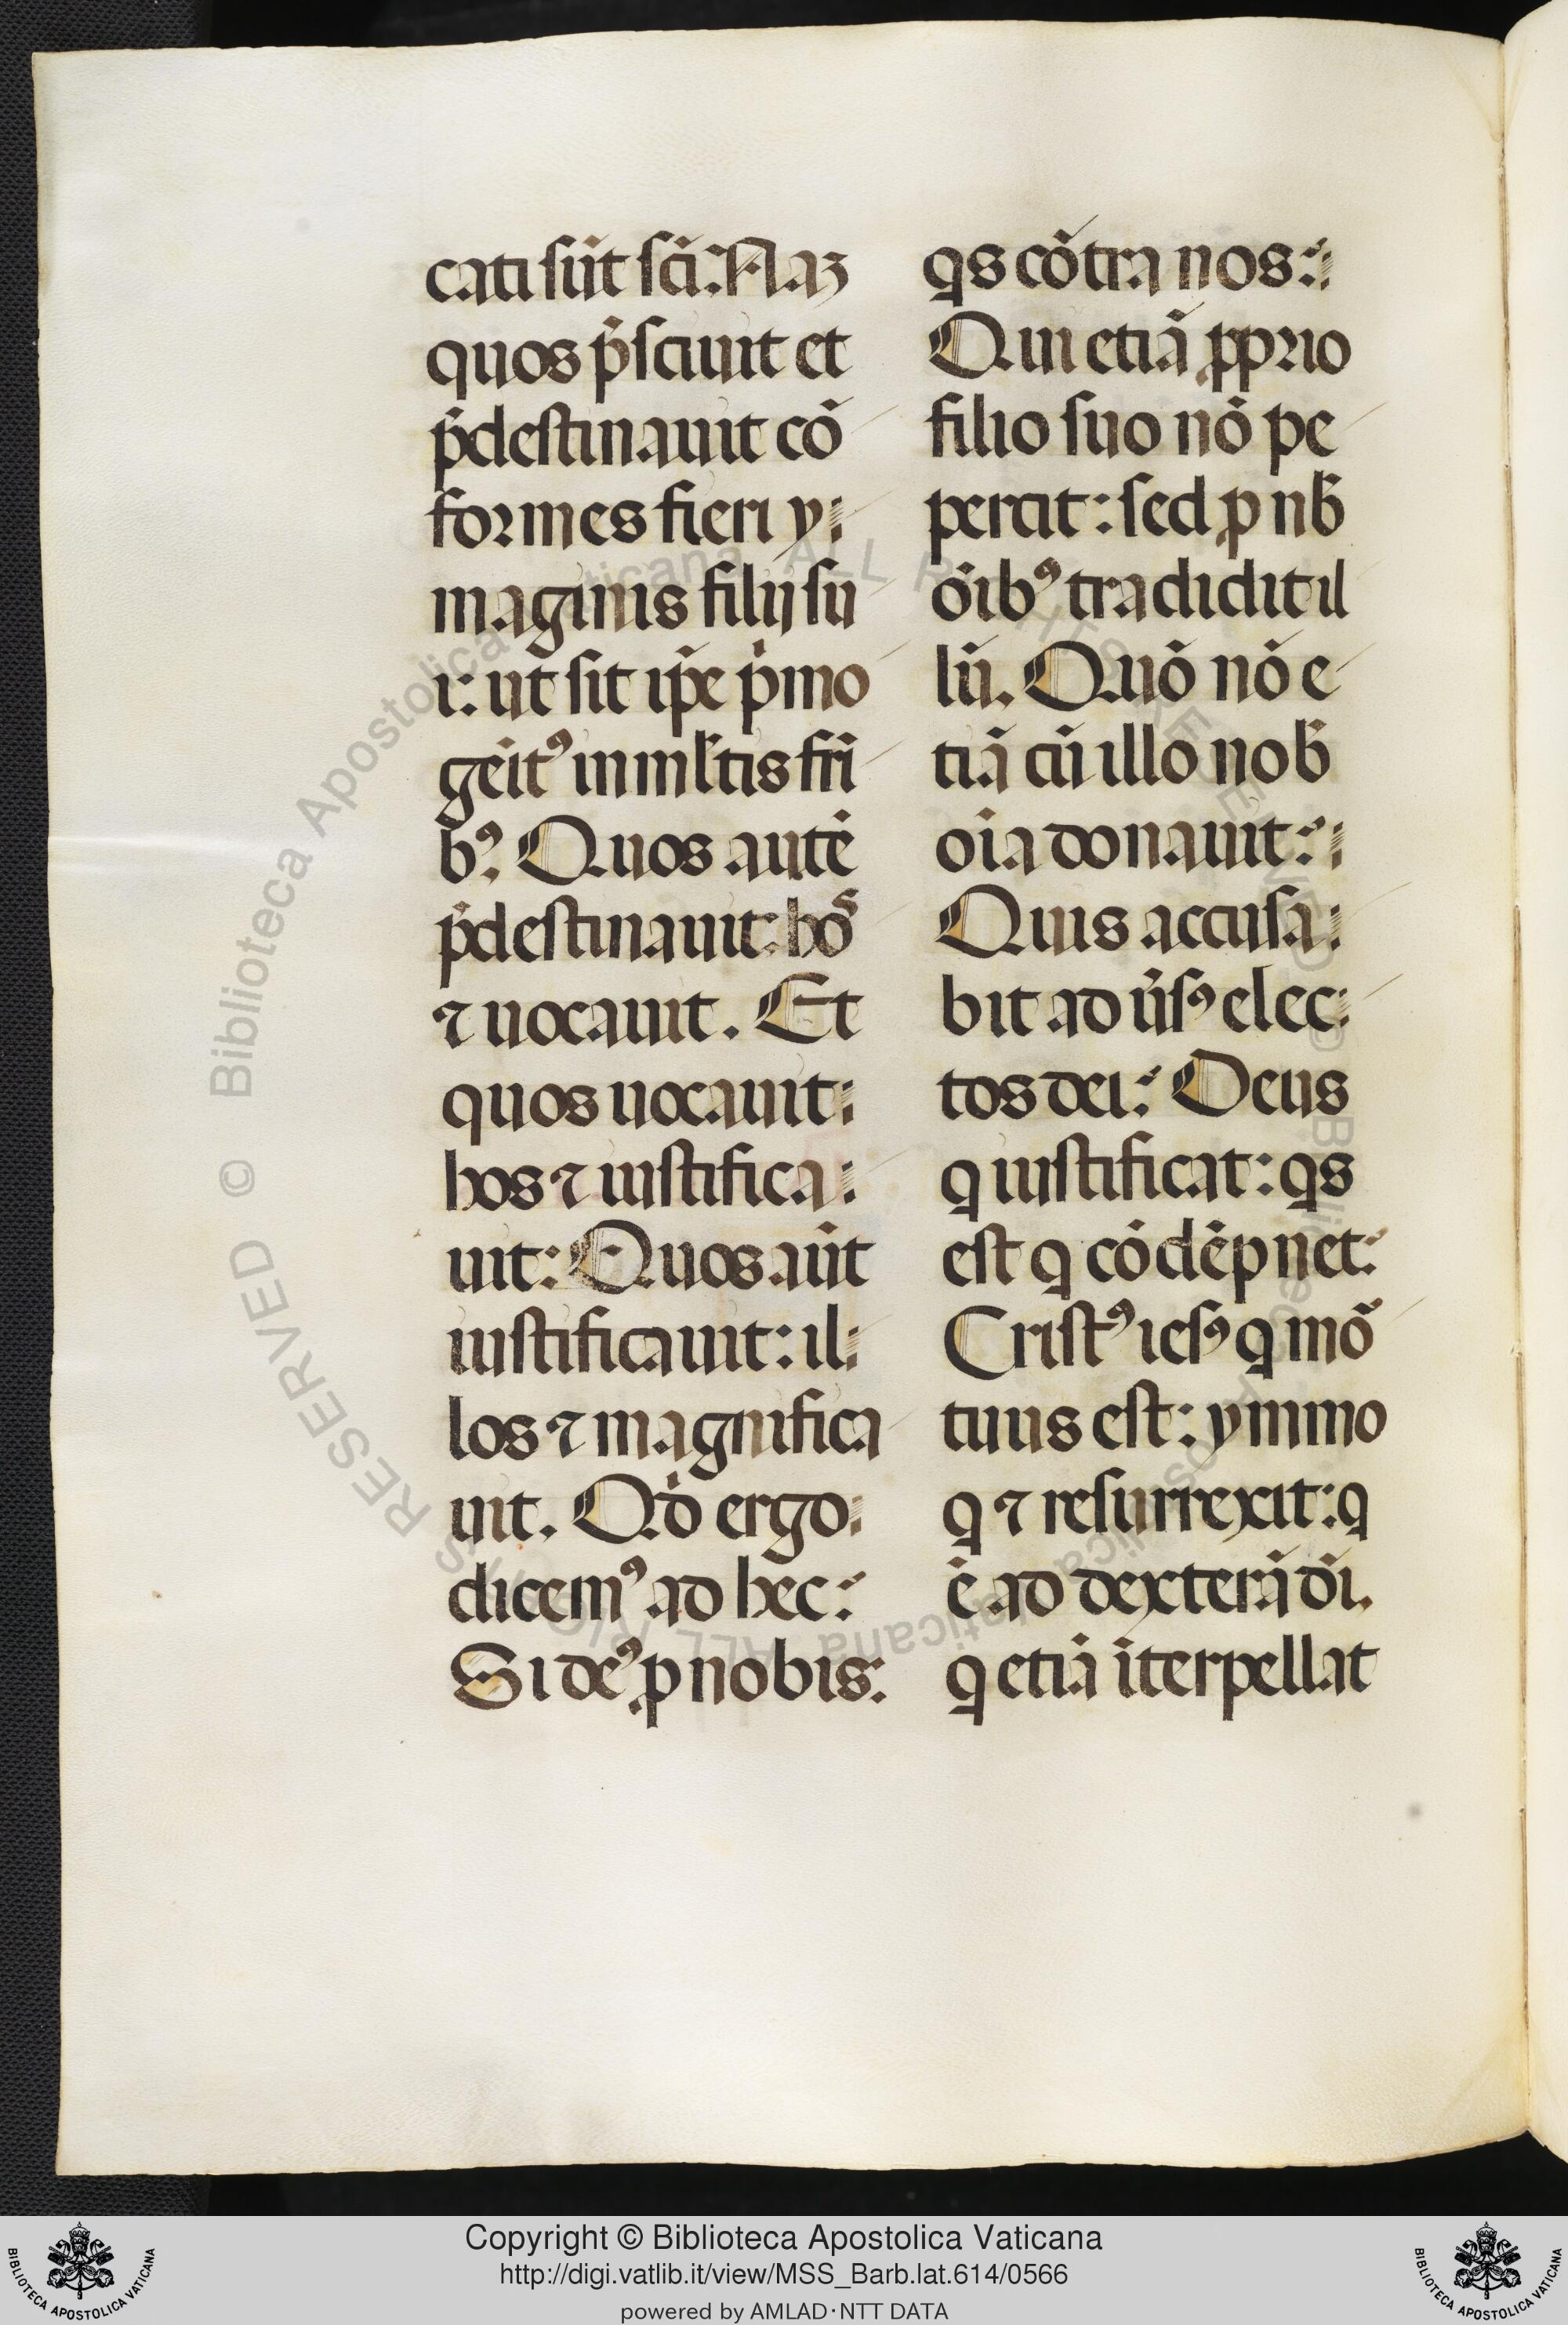 cati sūt sc̄i: Naꝫ
quos p̄sciuit et
p̄destinauit cō
formes fieri y
maginis filij su
i: ut sit ip̄e pͥmo
geītꝰ in ml̄tis fr̄i
bꝰ. Quos autē
p̄destinauit: hos
⁊ uocauit. Et
quos uocauit:
hos ⁊ iustifica
uit: Quos aūt
iustificauit: il
los ⁊ magnifica
uit. Qͥd ergo
dicemꝰ ad hec:
Si deꝰ ꝓ nobis:
qͥs cōtra nos:
Qui etiā ꝓprio
filio suo nō pe
percit: sed ꝓ nb̄
oībꝰ tradidit il
lū. Quō nō e
tiā cū illo nob̄
oīa donauit:
Quis accusa
bit aduͥsꝰ elec
tos dei: Deus
qͥ iustificat: qͥs
est qͥ cōdēpnet:
Cristꝰ iesꝰ qͥ mō
tuus est: ymmo
qͥ ⁊ resurrexit: qͥ
ē ad dexterā dī.
qͥ etiā īterpellat
© Biblioteca Apostolica Vaticana ALL RIGHTS RESERVED
Copyright © Biblioteca Apostolica Vaticana
http://digi.vatlib.it/view/MSS_Barb.lat.614/0566
powered by AMLAD·NTT DATA
BIBLIOTECA APOSTOLICA VATICANA
BIBLIOTECA APOSTOLICA VATICANA